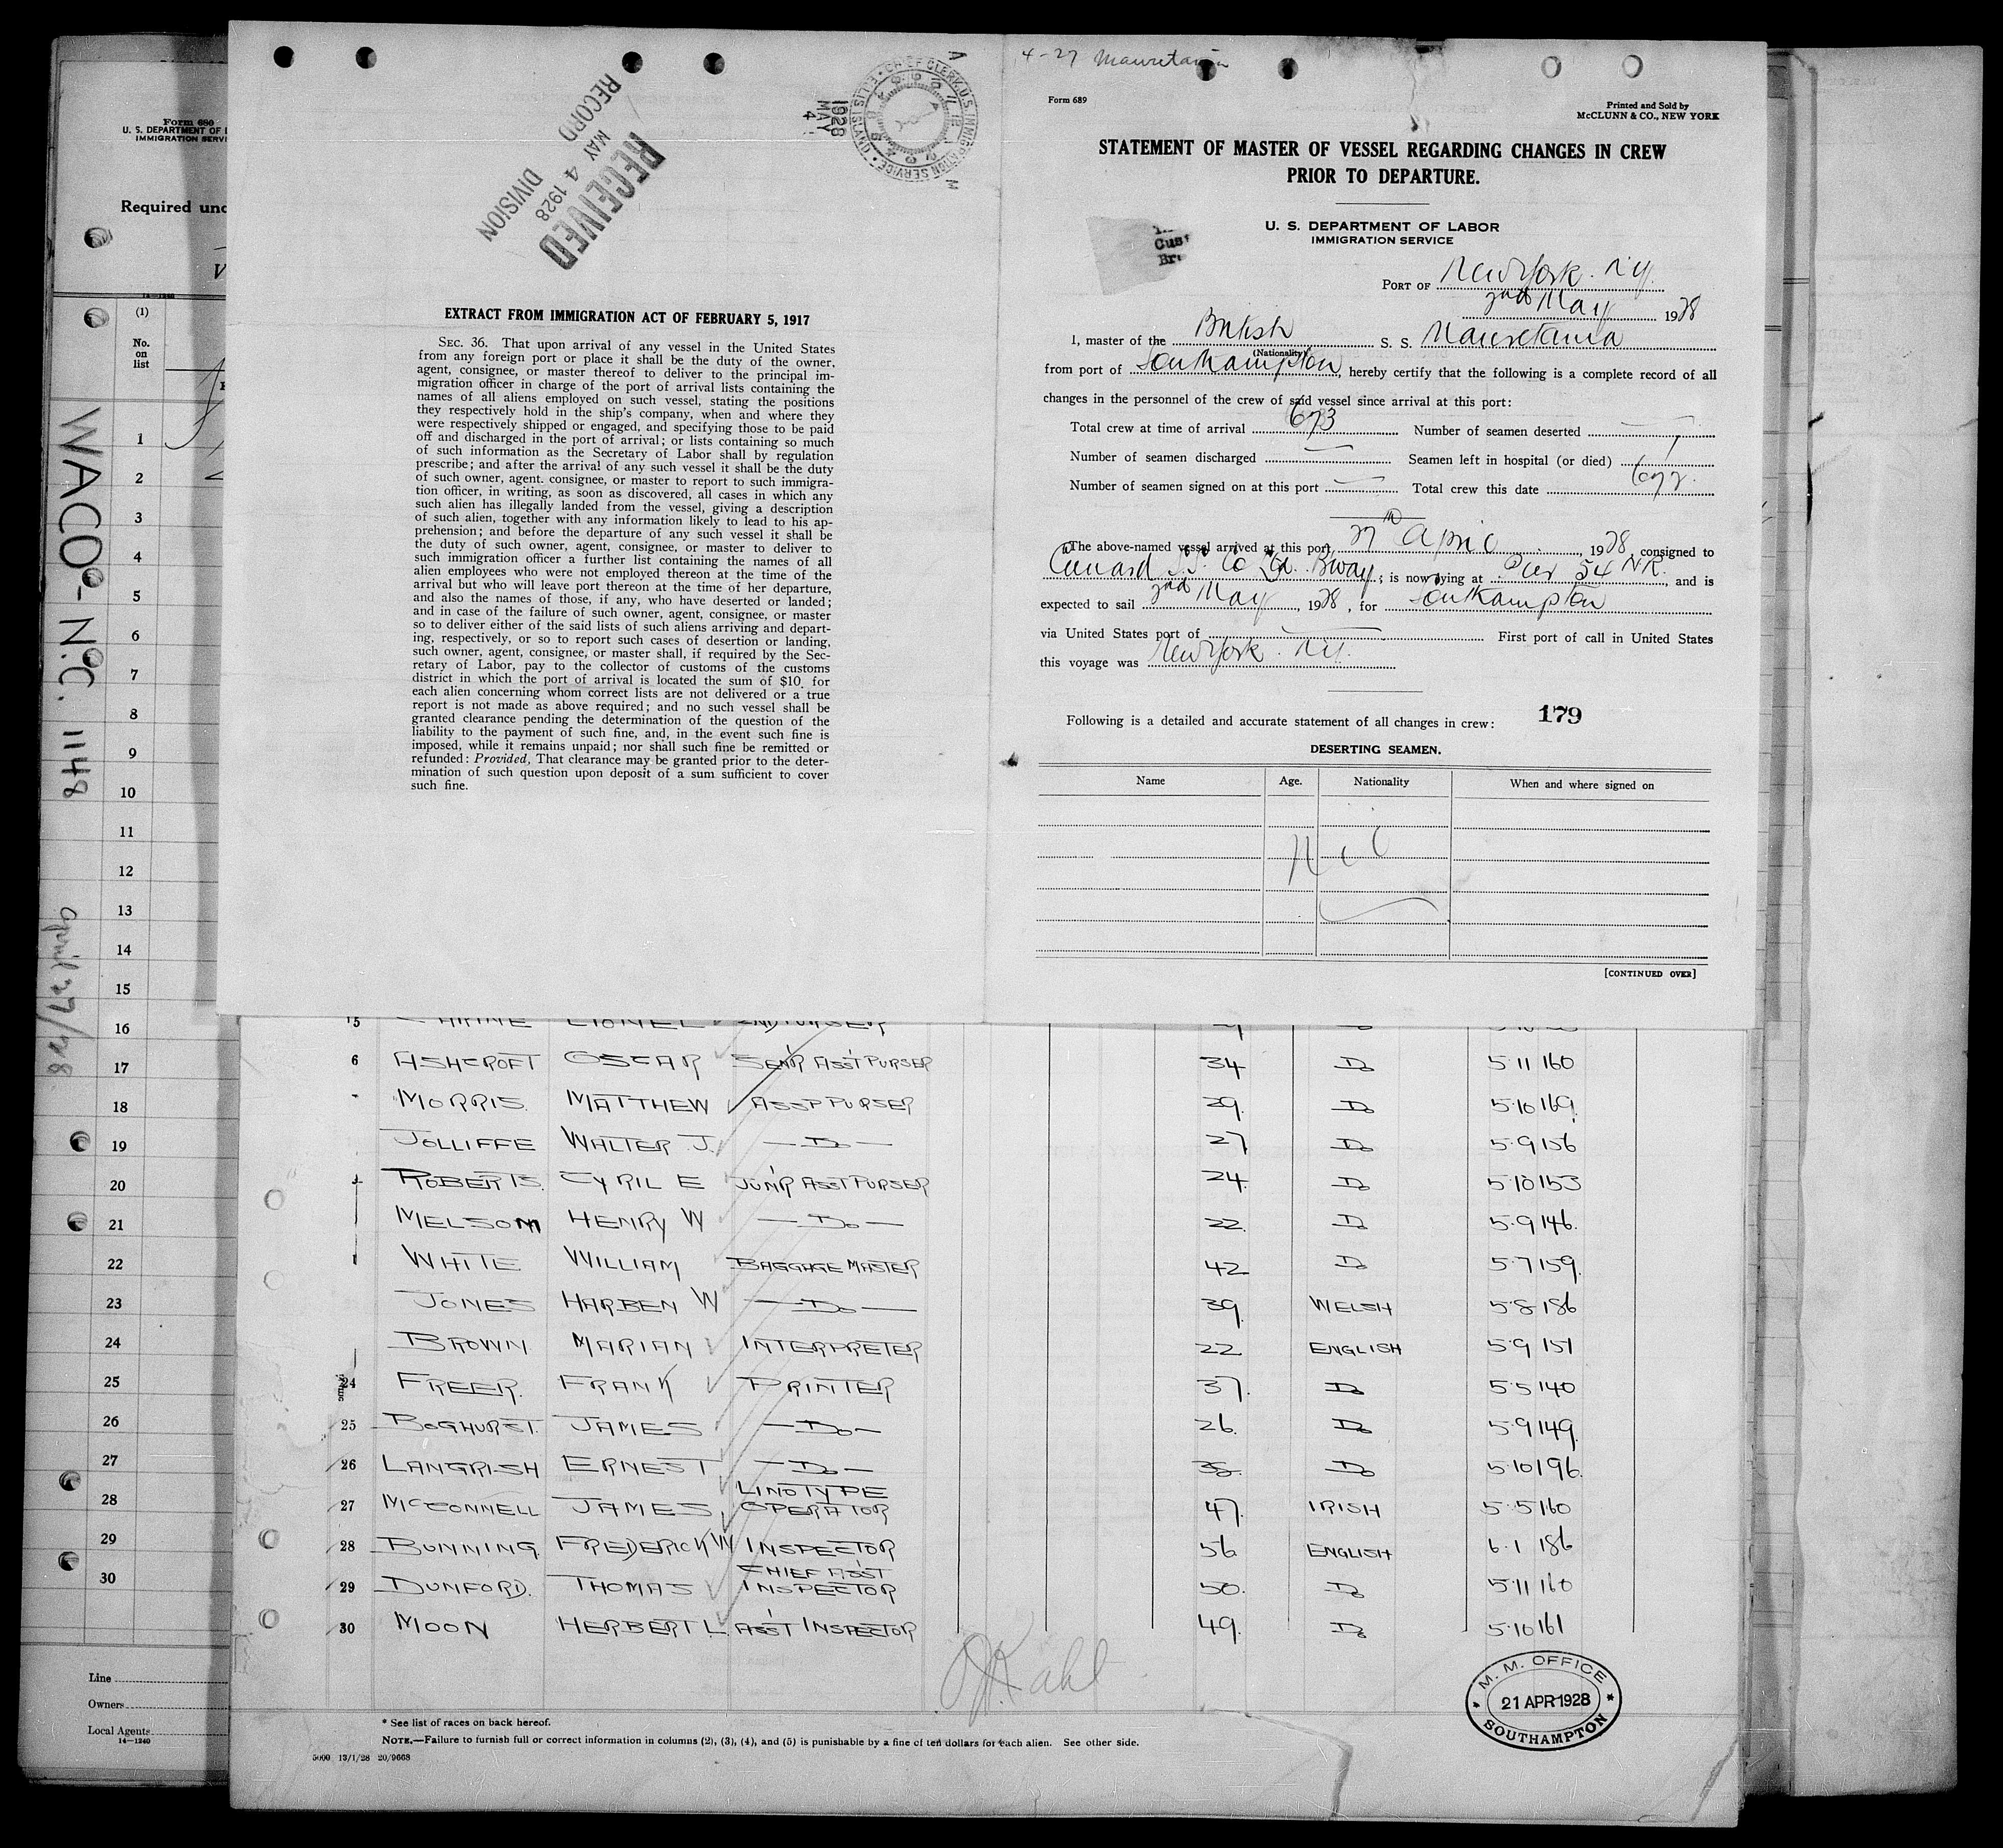 Form 680
U. S. DEPARTMENT OF
IMMIGRATION SERVI
Required und
14-1240
(1)
No.
on
list
1
2
3
4
5
6
7
8
9
10
11
12
13
14
15
16
17
18
19
20
21
22
23
24
25
26
27
28
29
30
Line
Owners
Local Agents
14-1240
WACO - N.C. 1148
April 27/28
RECEIVED
MAY 4 1928
RECORD DIVISION
1928
MAY
4
CHIEF CLERK, U.S. IMMIGRATION SERVICE • ELLIS ISLAND •
EXTRACT FROM IMMIGRATION ACT OF FEBRUARY 5, 1917
SEC. 36. That upon arrival of any vessel in the United States
from any foreign port or place it shall be the duty of the owner,
agent, consignee, or master thereof to deliver to the principal im-
migration officer in charge of the port of arrival lists containing the
names of all aliens employed on such vessel, stating the positions
they respectively hold in the ship's company, when and where they
were respectively shipped or engaged, and specifying those to be paid
off and discharged in the port of arrival; or lists containing so much
of such information as the Secretary of Labor shall by regulation
prescribe; and after the arrival of any such vessel it shall be the duty
of such owner, agent. consignee, or master to report to such immigra-
tion officer, in writing, as soon as discovered, all cases in which any
such alien has illegally landed from the vessel, giving a description
of such alien, together with any information likely to lead to his ap-
prehension; and before the departure of any such vessel it shall be
the duty of such owner, agent, consignee, or master to deliver to
such immigration officer a further list containing the names of all
alien employees who were not employed thereon at the time of the
arrival but who will leave port thereon at the time of her departure,
and also the names of those, if any, who have deserted or landed;
and in case of the failure of such owner, agent, consignee, or master
so to deliver either of the said lists of such aliens arriving and depart-
ing, respectively, or so to report such cases of desertion or landing,
such owner, agent, consignee, or master shall, if required by the Sec-
retary of Labor, pay to the collector of customs of the customs
district in which the port of arrival is located the sum of $10 for
each alien concerning whom correct lists are not delivered or a true
report is not made as above required; and no such vessel shall be
granted clearance pending the determination of the question of the
liability to the payment of such fine, and, in the event such fine is
imposed, while it remains unpaid; nor shall such fine be remitted or
refunded: Provided, That clearance may be granted prior to the deter-
mination of such question upon deposit of a sum sufficient to cover
such fine.
4-27 Mauretania
Form 689
Printed and Sold by
McCLUNN & CO., NEW YORK
STATEMENT OF MASTER OF VESSEL REGARDING CHANGES IN CREW
PRIOR TO DEPARTURE.
U. S. DEPARTMENT OF LABOR
IMMIGRATION SERVICE
PORT OF New York. N.Y.
2nd May 1928
I, master of the British S. S. Mauretania
(Nationality)
from port of Southampton, hereby certify that the following is a complete record of all
changes in the personnel of the crew of said vessel since arrival at this port:
Total crew at time of arrival 673 Number of seamen deserted —
Number of seamen discharged — Seamen left in hospital (or died) 1
Number of seamen signed on at this port — Total crew this date 672.
The above-named vessel arrived at this port 27th April, 1928, consigned to
Cunard S.S. Co Ltd. Bway; is now lying at Pier 54 N.R., and is
expected to sail 2nd May, 1928, for Southampton
via United States port of — First port of call in United States
this voyage was New York. N.Y.
Following is a detailed and accurate statement of all changes in crew: 179
DESERTING SEAMEN.
Name Age. Nationality When and where signed on
Nil
[CONTINUED OVER]
15 LIONEL 2ND PURSER
6 ASHCROFT OSCAR SEN'R ASS'T PURSER 34 Do 5·11 160
MORRIS. MATTHEW ASST PURSER 39. Do 5·10 169.
JOLLIFFE WALTER J. — Do — 27 Do 5·9 156
ROBERTS. CYRIL E JUN'R ASST PURSER 24. Do 5·10 153
MELSOM HENRY W — Do — 22. Do 5·9 146.
WHITE WILLIAM BAGGAGE MASTER 42 Do 5·7 159.
JONES HARBEN W — Do — 39. WELSH 5·8 186
BROWN. MARIAN INTERPRETER 22 ENGLISH 5·9 151
24 FREER. FRANK PRINTER 37. Do 5·5 140
25 BOGHURST. JAMES — Do — 26. Do 5·9 149.
26 LANGRISH ERNEST — Do — 38. Do 5·10 196.
27 McCONNELL JAMES LINOTYPE OPERATOR 47. IRISH 5·5 160
28 BUNNING FREDERICK W INSPECTOR 56 ENGLISH 6·1 186
29 DUNFORD. THOMAS CHIEF ASS'T INSPECTOR 50. Do 5·11 160
30 MOON HERBERT L. ASS'T INSPECTOR 49. Do 5·10 161
Kahl
M. M. OFFICE
21 APR 1928
SOUTHAMPTON
* See list of races on back hereof.
NOTE.—Failure to furnish full or correct information in columns (2), (3), (4), and (5) is punishable by a fine of ten dollars for each alien. See other side.
5000 13/1/28 20/9668